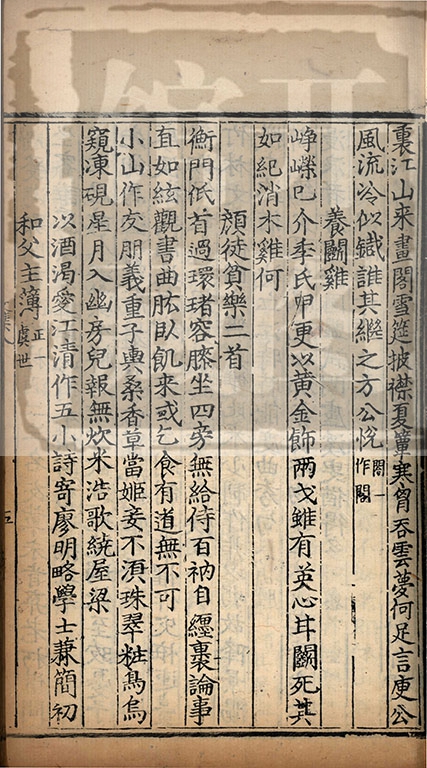 裏江山來畫閣雪筵披襟夏簟寒胷吞雲夢何足言庾公
風流冷似鐵誰其繼之方公悅閣一作閤
養鬭雞
崢嶸已介季氏甲更以黃金飾兩戈雖有英心甘鬭死其
如紀渻木雞何
顔徒貧樂二首
衡門低首過環堵容膝坐四旁無給侍百衲自纏裹論事
直如絃觀書曲肱臥飢來或乞食有道無不可
小山作友朋義重子輿桑香草當姬妾不湏珠翠粧鳥烏
窺凍硯星月入幽房兒報無炊米浩歌繞屋梁
以酒渴愛江清作五小詩寄廖明略學士兼簡初
和父主簿正一虞世
五